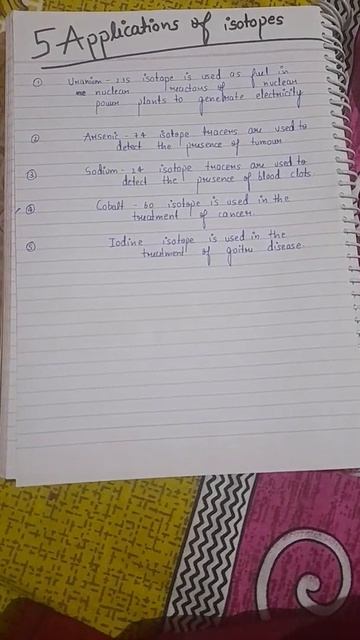 5 Applications of isotopes
① Uranium - 235 isotope is used as fuel in
nuclear reactors of nuclear
power plants to generate electricity
② Arsenic - 74 isotope tracers are used to
detect the presence of tumour
③ Sodium - 24 isotope tracers are used to
detect the presence of blood clots
④ Cobalt - 60 isotope is used in the
treatment of cancer.
⑤ Iodine isotope is used in the
treatment of goitre disease.